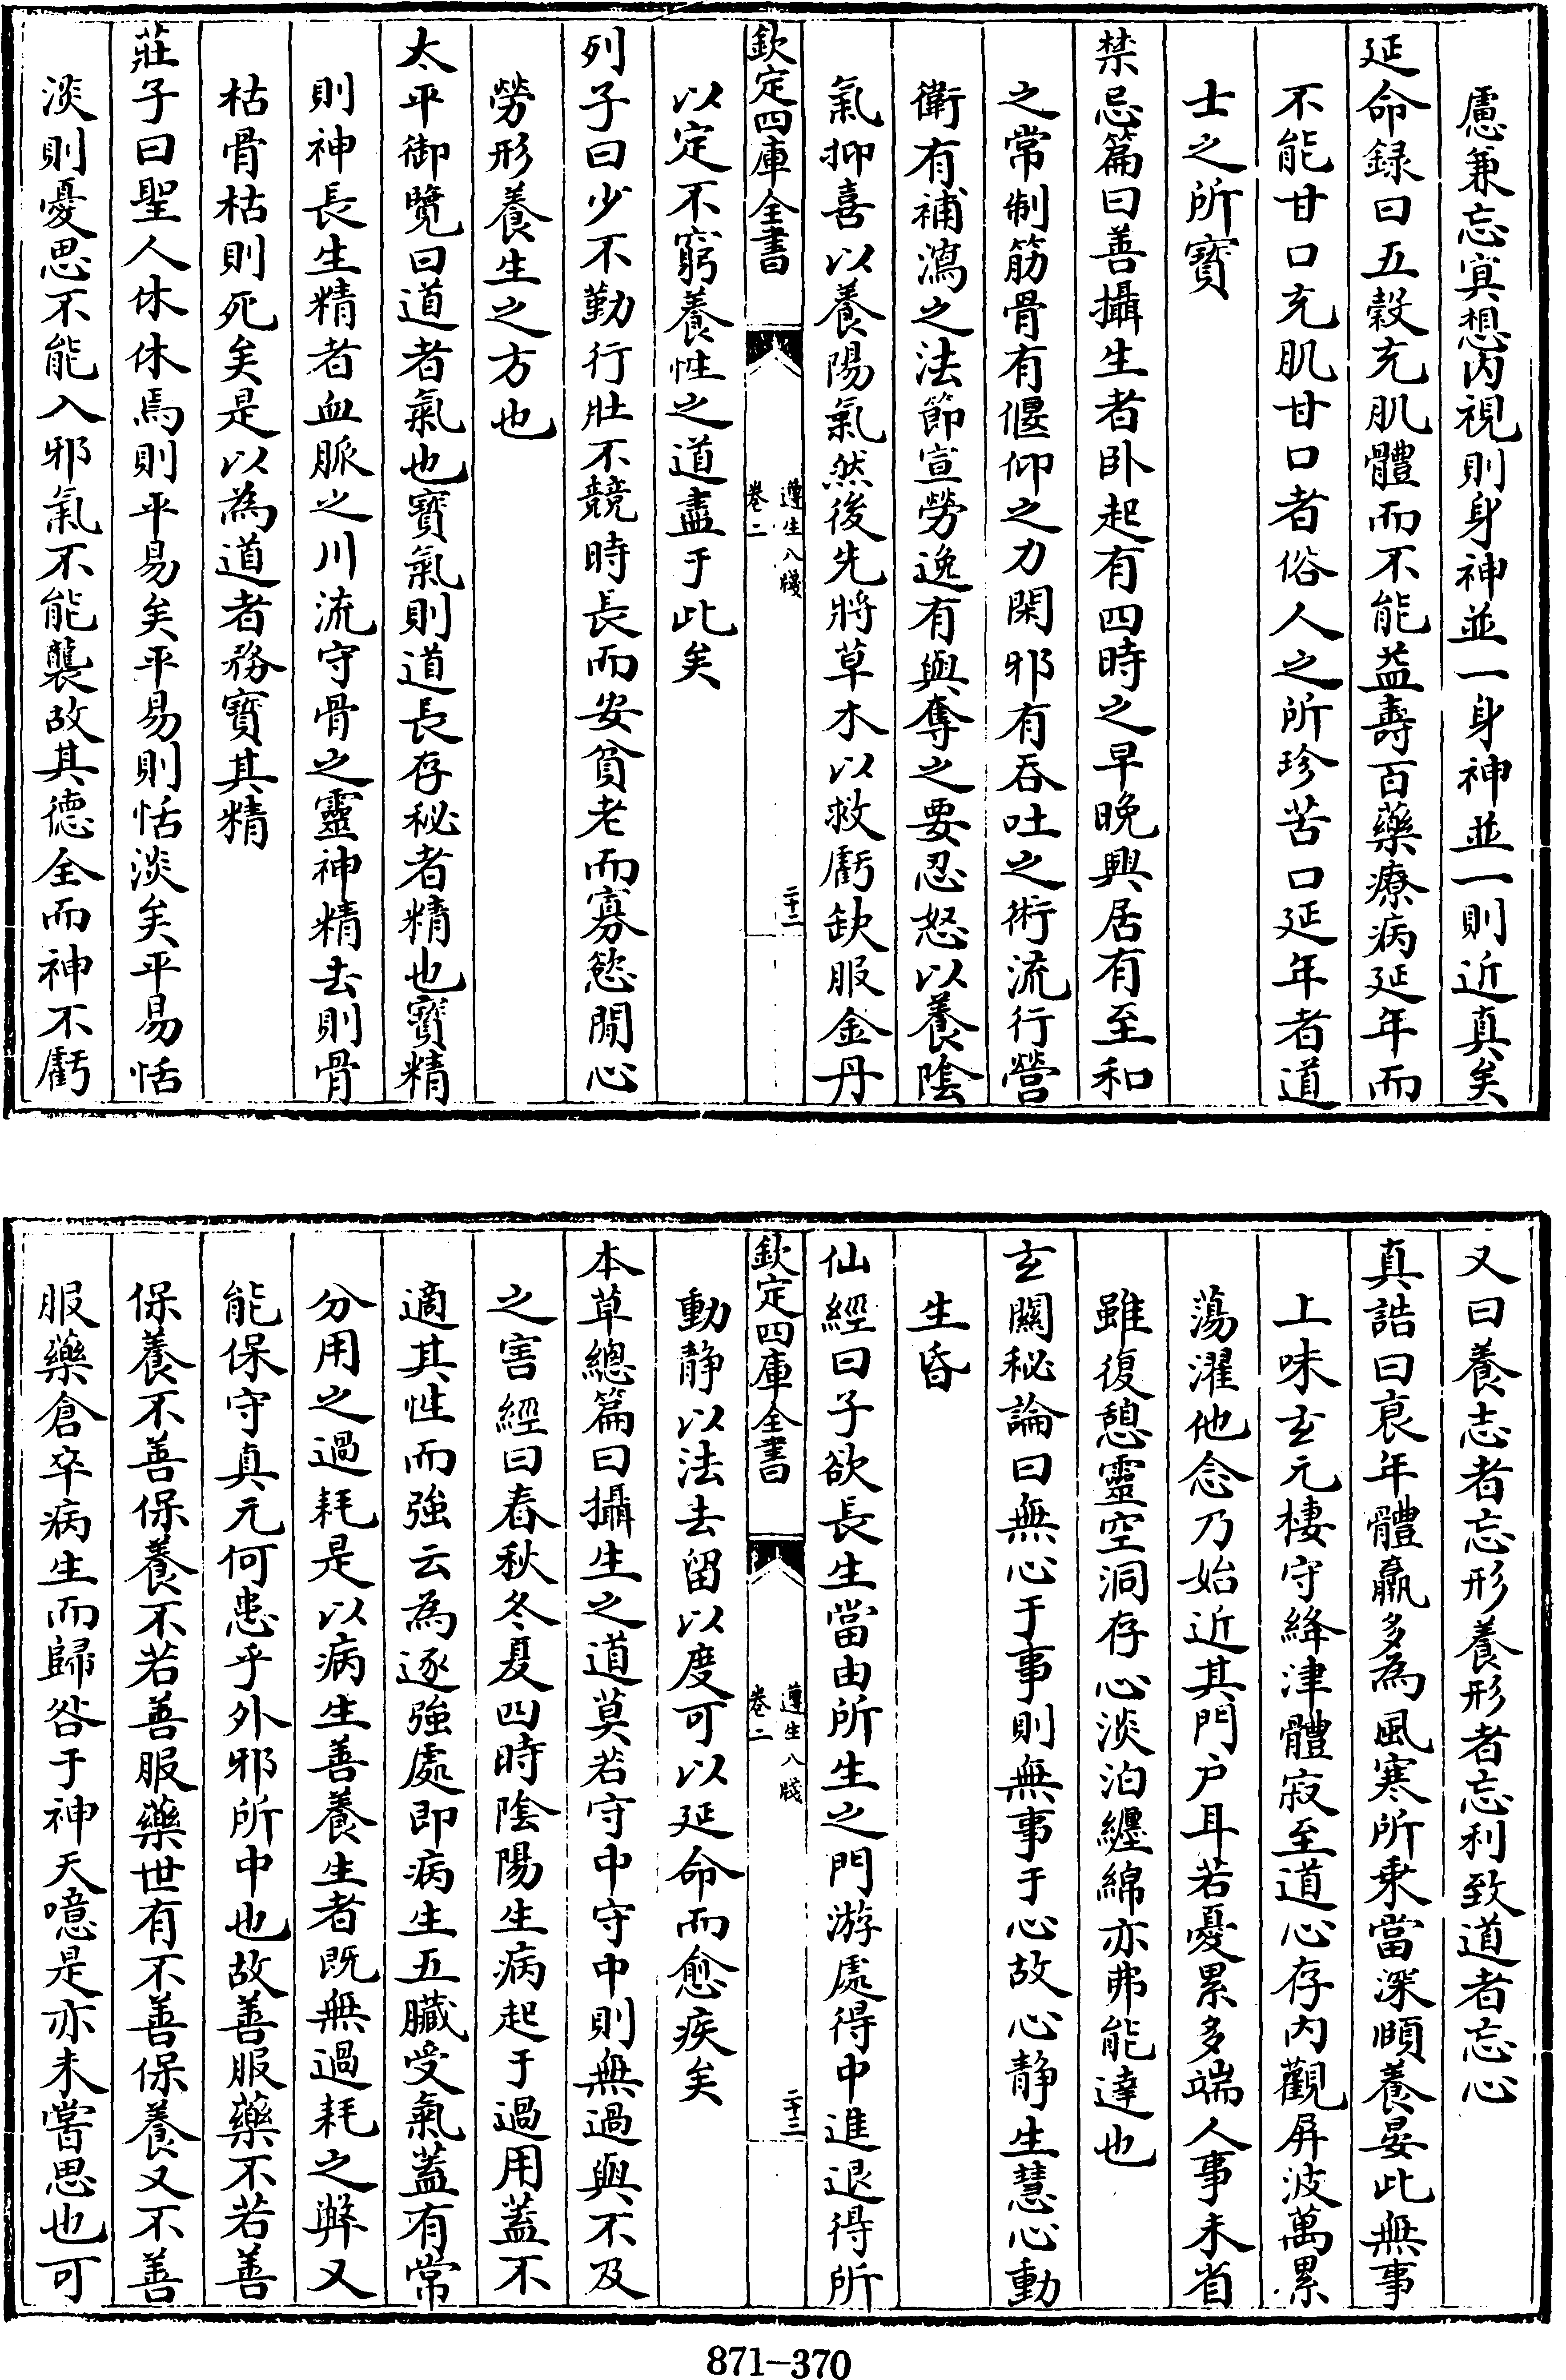 慮兼忘㝠想内視則身神並一身神並一則近真矣
延命録曰五榖充肌體而不能益壽百藥療病延年而
不能甘口充肌甘口者俗人之所珍苦口延年者道
士之所寳
禁忌篇曰善攝生者卧起有四時之早晚興居有至和
之常制筋骨有偃仰之力閑邪有吞吐之術流行營
衛有補瀉之法節宣勞逸有與奪之要忍怒以養隂
氣抑喜以養陽氣然後先將草木以救虧缺服金丹
欽定四庫全書
遵生八牋
卷二
二十二
以定不窮養性之道盡于此矣
列子曰少不勤行壯不競時長而安貧老而寡慾閒心
勞形養生之方也
太平御覽曰道者氣也寳氣則道長存秘者精也寳精
則神長生精者血脈之川流守骨之靈神精去則骨
枯骨枯則死矣是以為道者務寳其精
莊子曰聖人休休焉則平易矣平易則恬淡矣平易恬
淡則憂思不能入邪氣不能襲故其德全而神不虧
又曰養志者忘形養形者忘利致道者忘心
真誥曰衰年體羸多為風寒所乗當深頤養晏此無事
上味玄元棲守絳津體寂至道心存内觀屏波萬累
蕩濯他念乃始近其門户耳若憂累多端人事未省
雖復憩靈空洞存心淡泊纒綿亦弗能達也
玄關秘論曰無心于事則無事于心故心静生慧心動
生昏
仙經曰子欲長生當由所生之門游處得中進退得所
欽定四庫全書
遵生八牋
卷二
二十三
動静以法去留以度可以延命而愈疾矣
本草總篇曰攝生之道莫若守中守中則無過與不及
之害經曰春秋冬夏四時隂陽生病起于過用蓋不
適其性而強云為逐強處即病生五臟受氣蓋有常
分用之過耗是以病生善養生者既無過耗之弊又
能保守真元何患乎外邪所中也故善服藥不若善
保養不善保養不若善服藥世有不善保養又不善
服藥倉卒病生而歸咎于神天噫是亦未嘗思也可
871-370